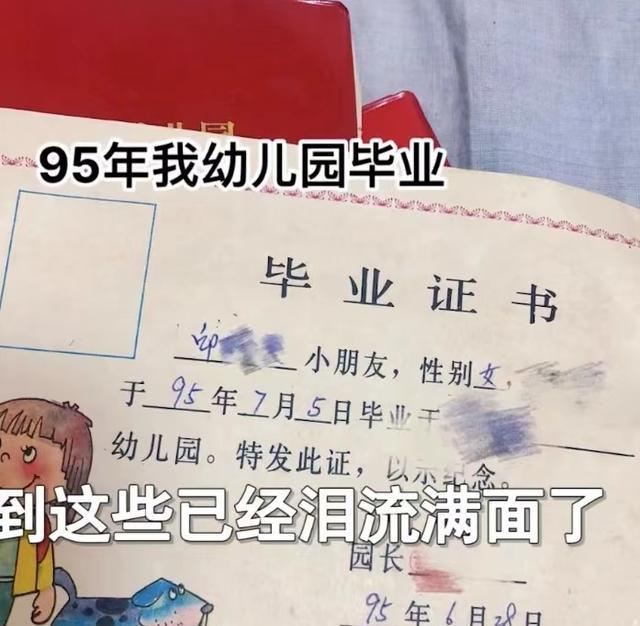 儿园
95年我幼儿园毕业
毕业证书
邱 小朋友，性别女，
于95年7月5日毕业于
幼儿园。特发此证，以示纪念。
到这些已经泪流满面了
园长
95年6月28日